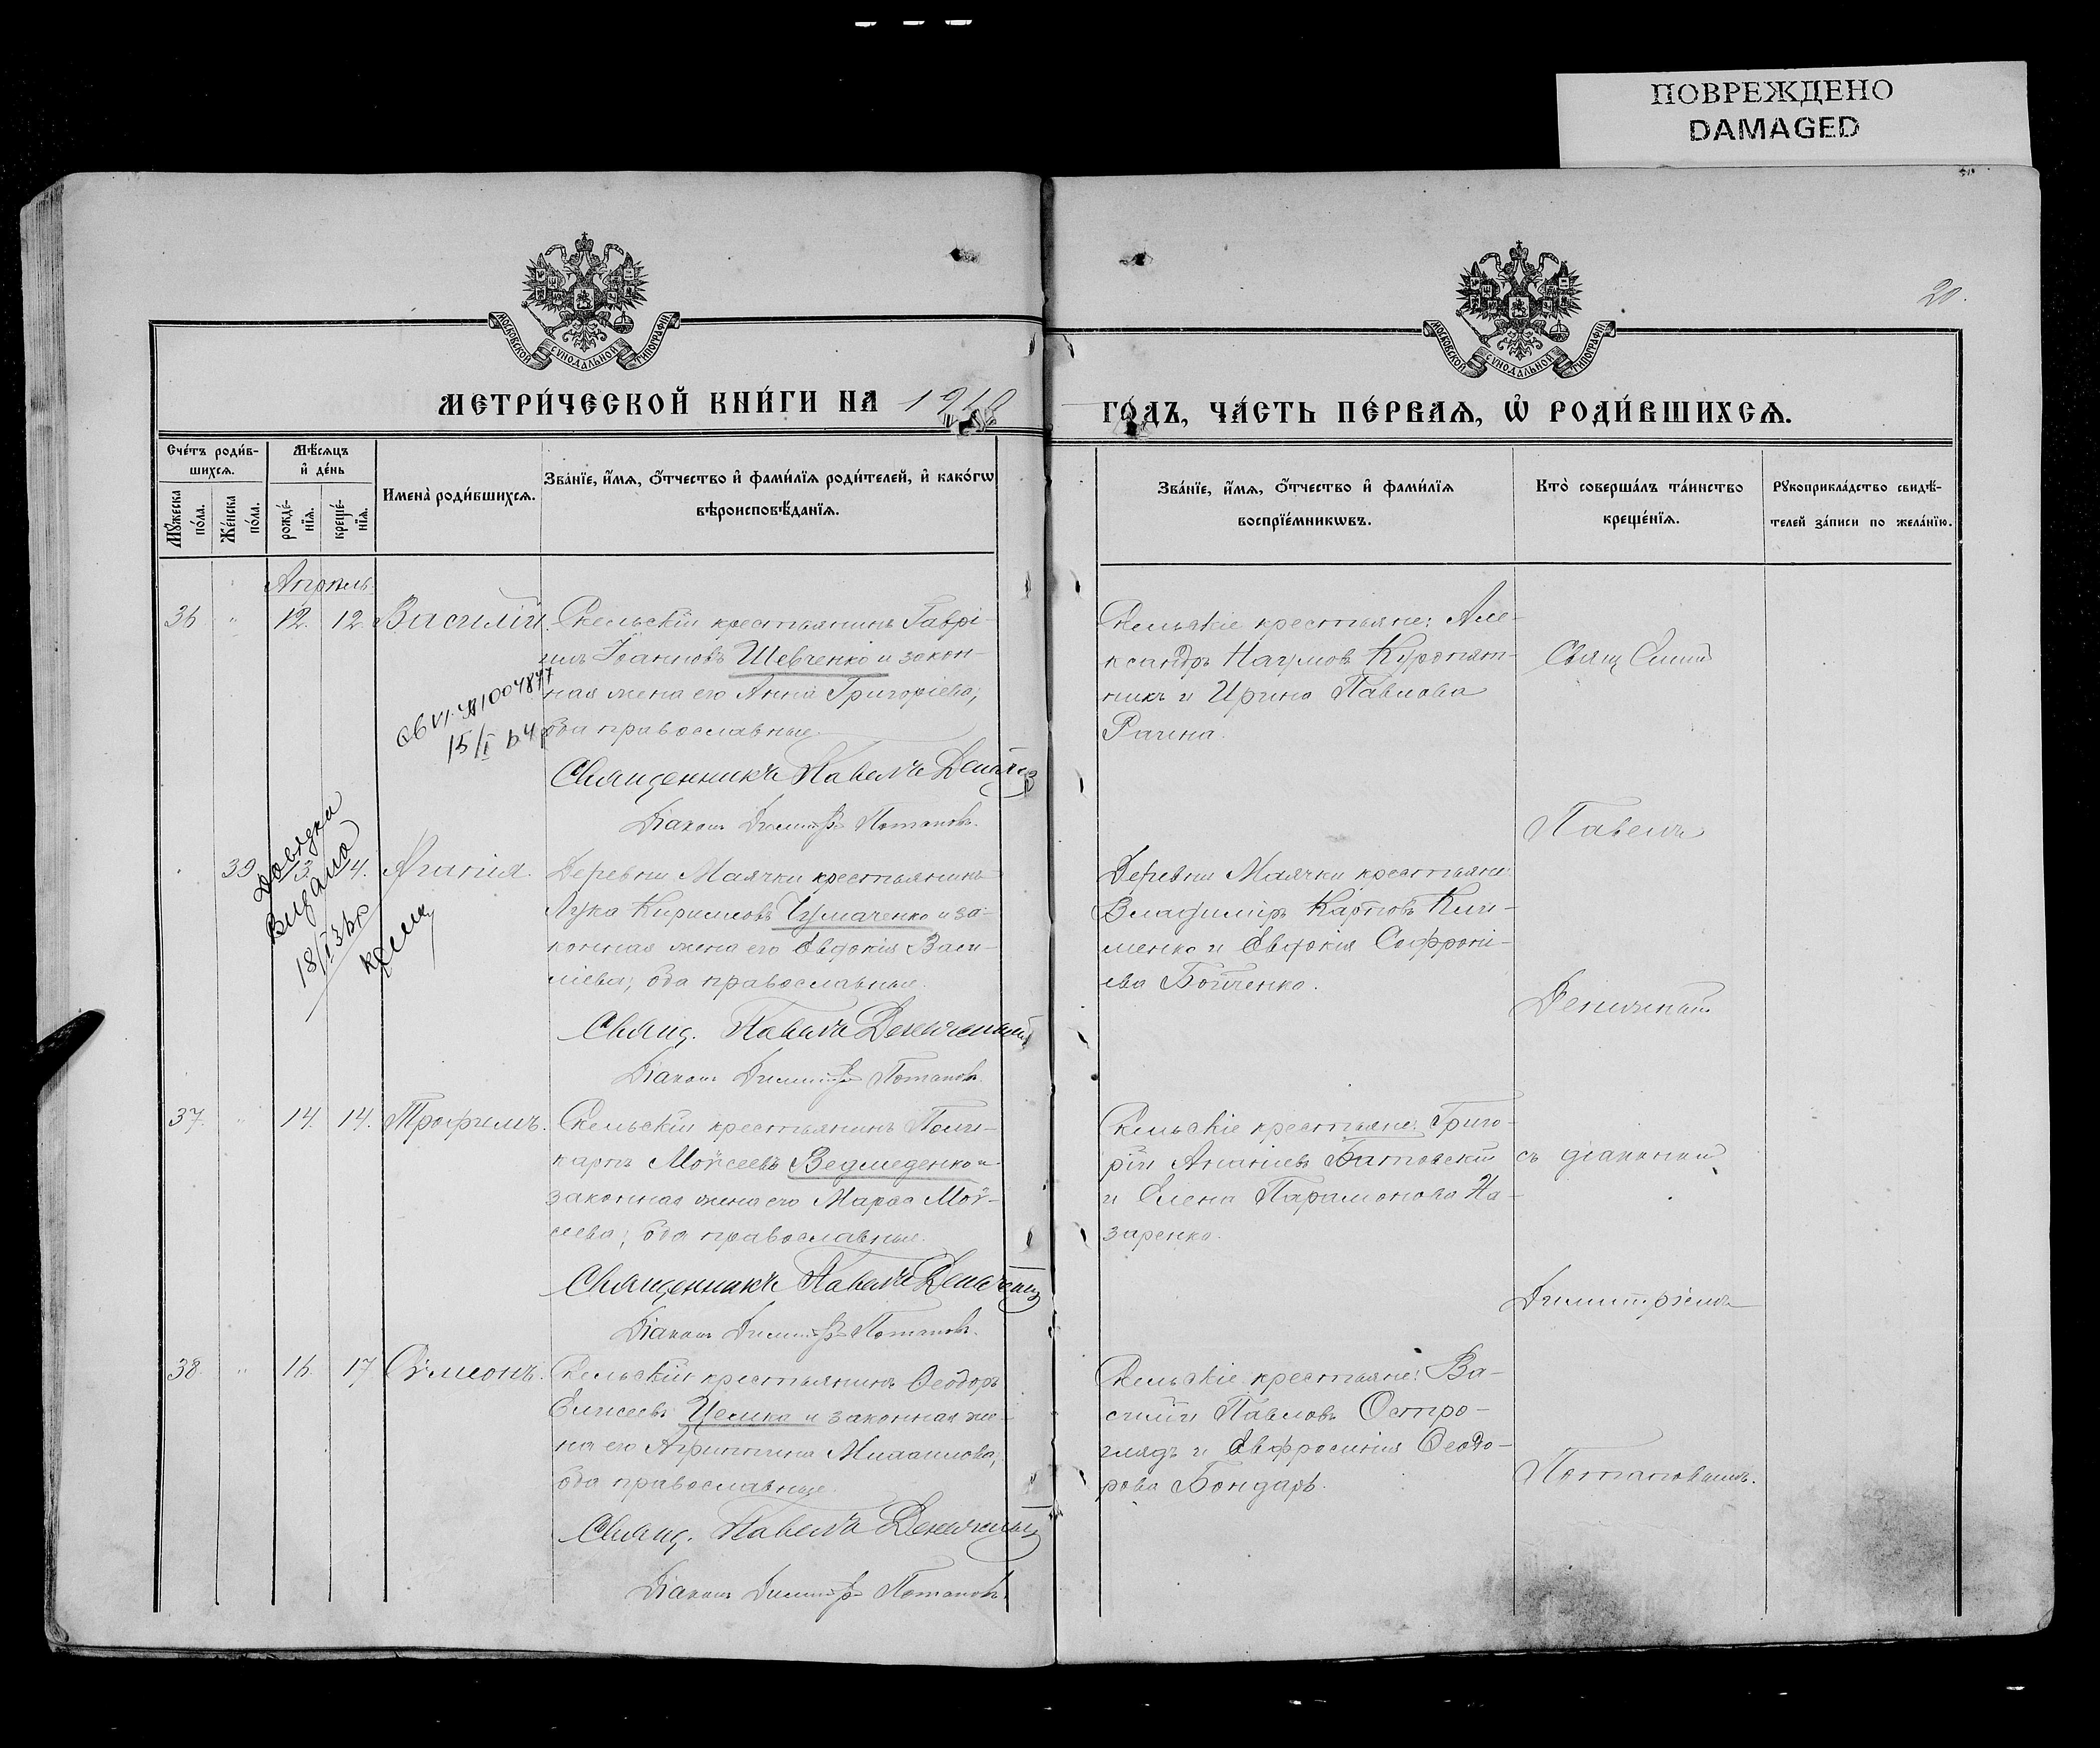 ПОВРЕЖДЕНО
DAMAGED
20.
МОСКОВСКОЙ СѴНОДАЛЬНОЙ ТИПОГРАФІИ
МОСКОВСКОЙ СѴНОДАЛЬНОЙ ТИПОГРАФІИ
МЕТРИ́ЧЕСКОЙ КНИ́ГИ НА
ГО́ДЪ, ЧА́СТЬ ПЕ́РВАѦ, Ѡ҆ РОДИ́ВШИХСѦ.
Сче́тъ роди́в-
шихсѧ.
Мꙋ́жеска
по́ла.
Же́нска
по́ла.
Мѣ́сѧцъ
и҆ де́нь
рожде́-
нїѧ.
креще́-
нїѧ.
Имена̀ роди́вшихсѧ.
Зва́нїе, и҆́мѧ, ѻ҆́тчество и҆ фами́лїѧ роди́телей, и҆ како́гѡ
вѣроисповѣ́данїѧ.
Зва́нїе, и҆́мѧ, ѻ҆́тчество и҆ фами́лїѧ
воспрїе́мникѡвъ.
Кто̀ соверша́лъ та́инство
креще́нїѧ.
Рꙋкоприкла́дство свидѣ́-
телей за́писи по жела́нїю.
Апрѣль
36 " 12. 12. Василій. Скельскій крестьянинъ Гаврі-
илъ Іоанновъ Шевченко и закон-
ная жена его Анна Григоріева;
оба православные.
Священникъ Павелъ
Діаконъ Димитрій Потаповъ.
15/I
Скельскіе крестьяне: Але-
ксандръ Наумовъ Куропят-
никъ и Ирина Павлова
Рачна.
Свящ
Павелъ
39 13 14. Агапія. Деревни Маячки крестьянинъ
Лука Кирилловъ Чумаченко и за-
конная жена его Евдокія Васи-
ліева; оба православные.
Свящ. Павелъ
Діаконъ Димитрій Потаповъ.
Довідка
видана
18/I
Деревни Маячки крестьяне:
Владиміръ Карповъ Кли-
менко и Евдокія Софроні-
ева Бойченко.
37. " 14. 14. Трофимъ. Скельскій крестьянинъ Поли-
карпъ Моѵсеевъ Ведмеденко и
законная жена его Марѳа Моѵ-
сеева; оба православные.
Священникъ Павелъ
Діаконъ Димитрій Потаповъ.
Скельскіе крестьяне: Григо-
рій Ананіевъ Батовскій
и Елена Парамонова На-
заренко.
съ діакономъ
Димитріемъ
38. " 16. 17 Сѵмеонъ. Скельскій крестьянинъ Ѳеодоръ
Елисеевъ Целико и законная же-
на его Агриппина Михаилова;
оба православные.
Свящ. Павелъ
Діаконъ Димитрій Потаповъ.
Скельскіе крестьяне: Ва-
силій Павловъ Остро-
глядъ и Евфросинія Ѳеодо-
рова Бондарь.
Потаповымъ.